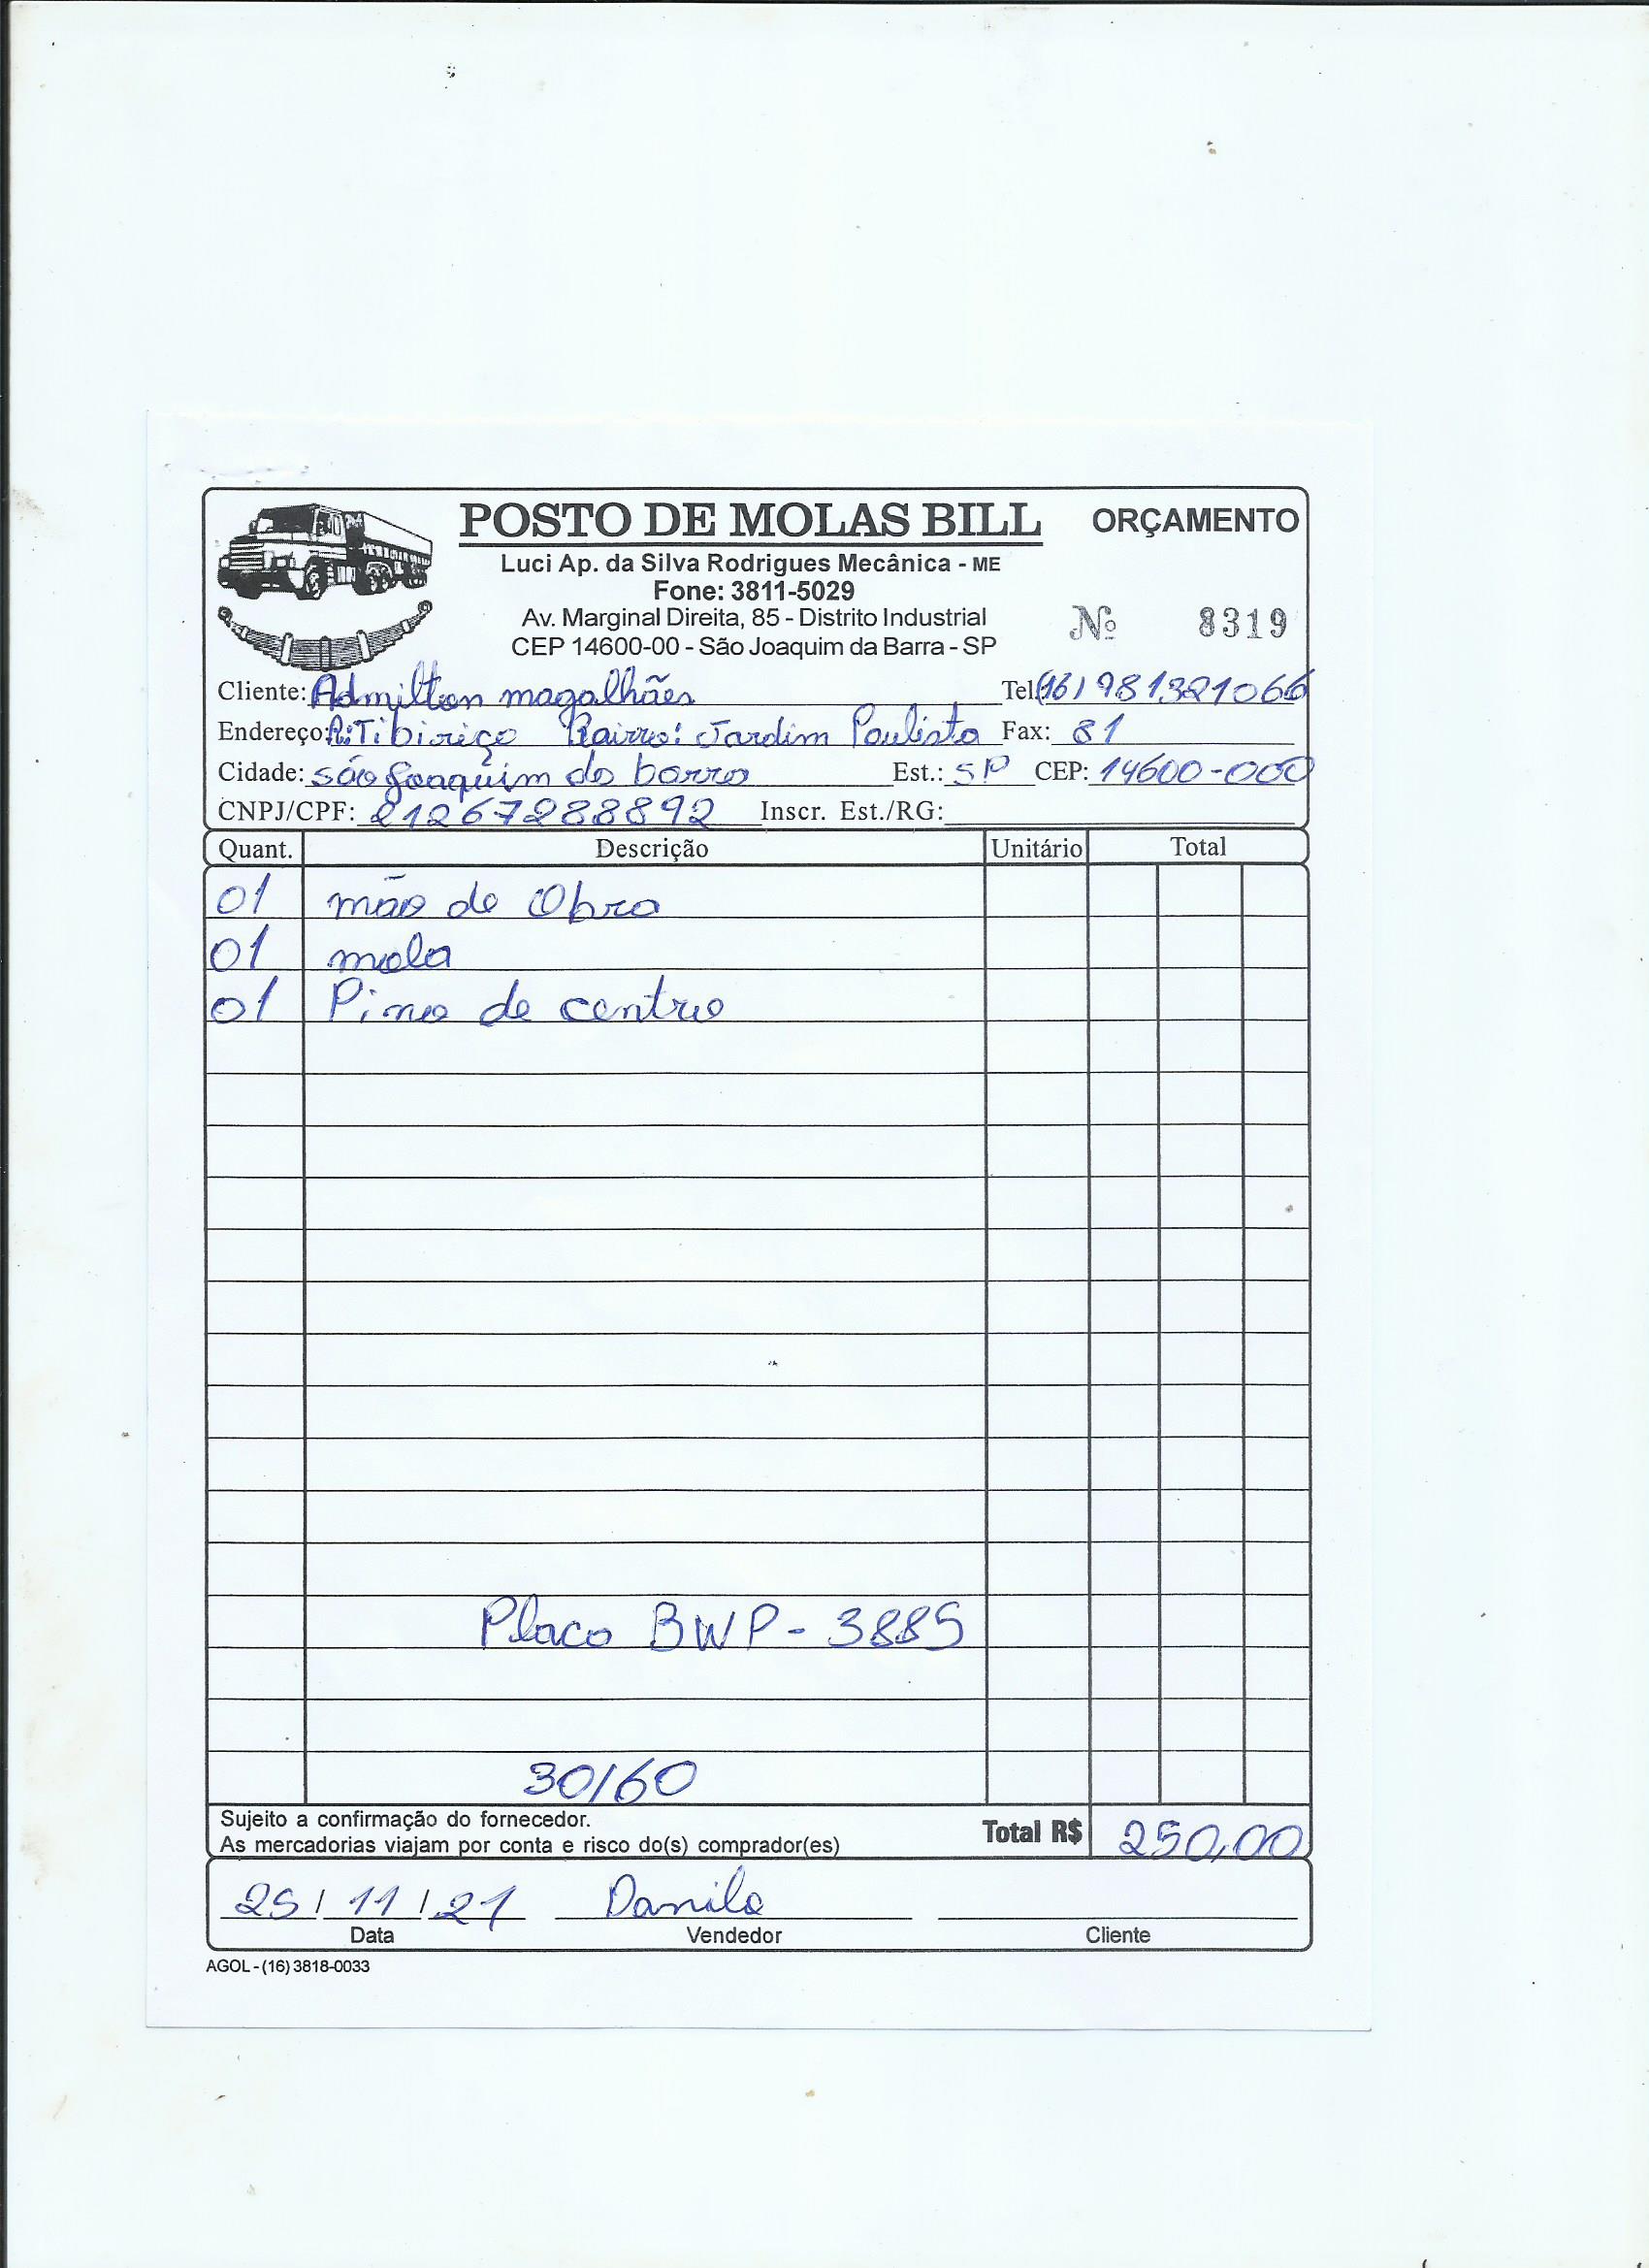 POSTO DE MOLAS BILL ORÇAMENTO
Luci Ap. da Silva Rodrigues Mecânica - ME
Fone: 3811-5029
Av. Marginal Direita, 85 - Distrito Industrial
Nº 8319
CEP 14600-00 - São Joaquim da Barra - SP
Cliente: Admilton magalhães Tel.(16) 981321066
Endereço: R: Tibiriça Bairro: Jardim Paulista Fax: 81
Cidade: são Joaquim da barra Est.: SP CEP: 14600-000
CNPJ/CPF: 21267288892 Inscr. Est./RG:
Quant. Descrição Unitário Total
01 mão de Obra
01 mola
01 Pino de centro
Placa BWP - 3885
30/60
Sujeito a confirmação do fornecedor.
As mercadorias viajam por conta e risco do(s) comprador(es)
Total R$ 250,00
25 / 11 / 21 Danilo
Data Vendedor Cliente
AGOL - (16) 3818-0033